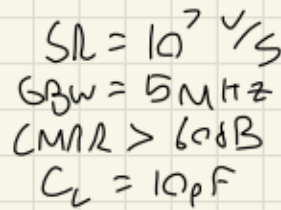 SR = 10⁷ V/S
GBW = 5MHz
CMRR > 60dB
C_L = 10pF